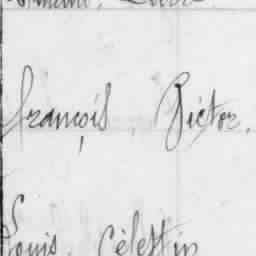 françois, Victor,
Louis, Célestin